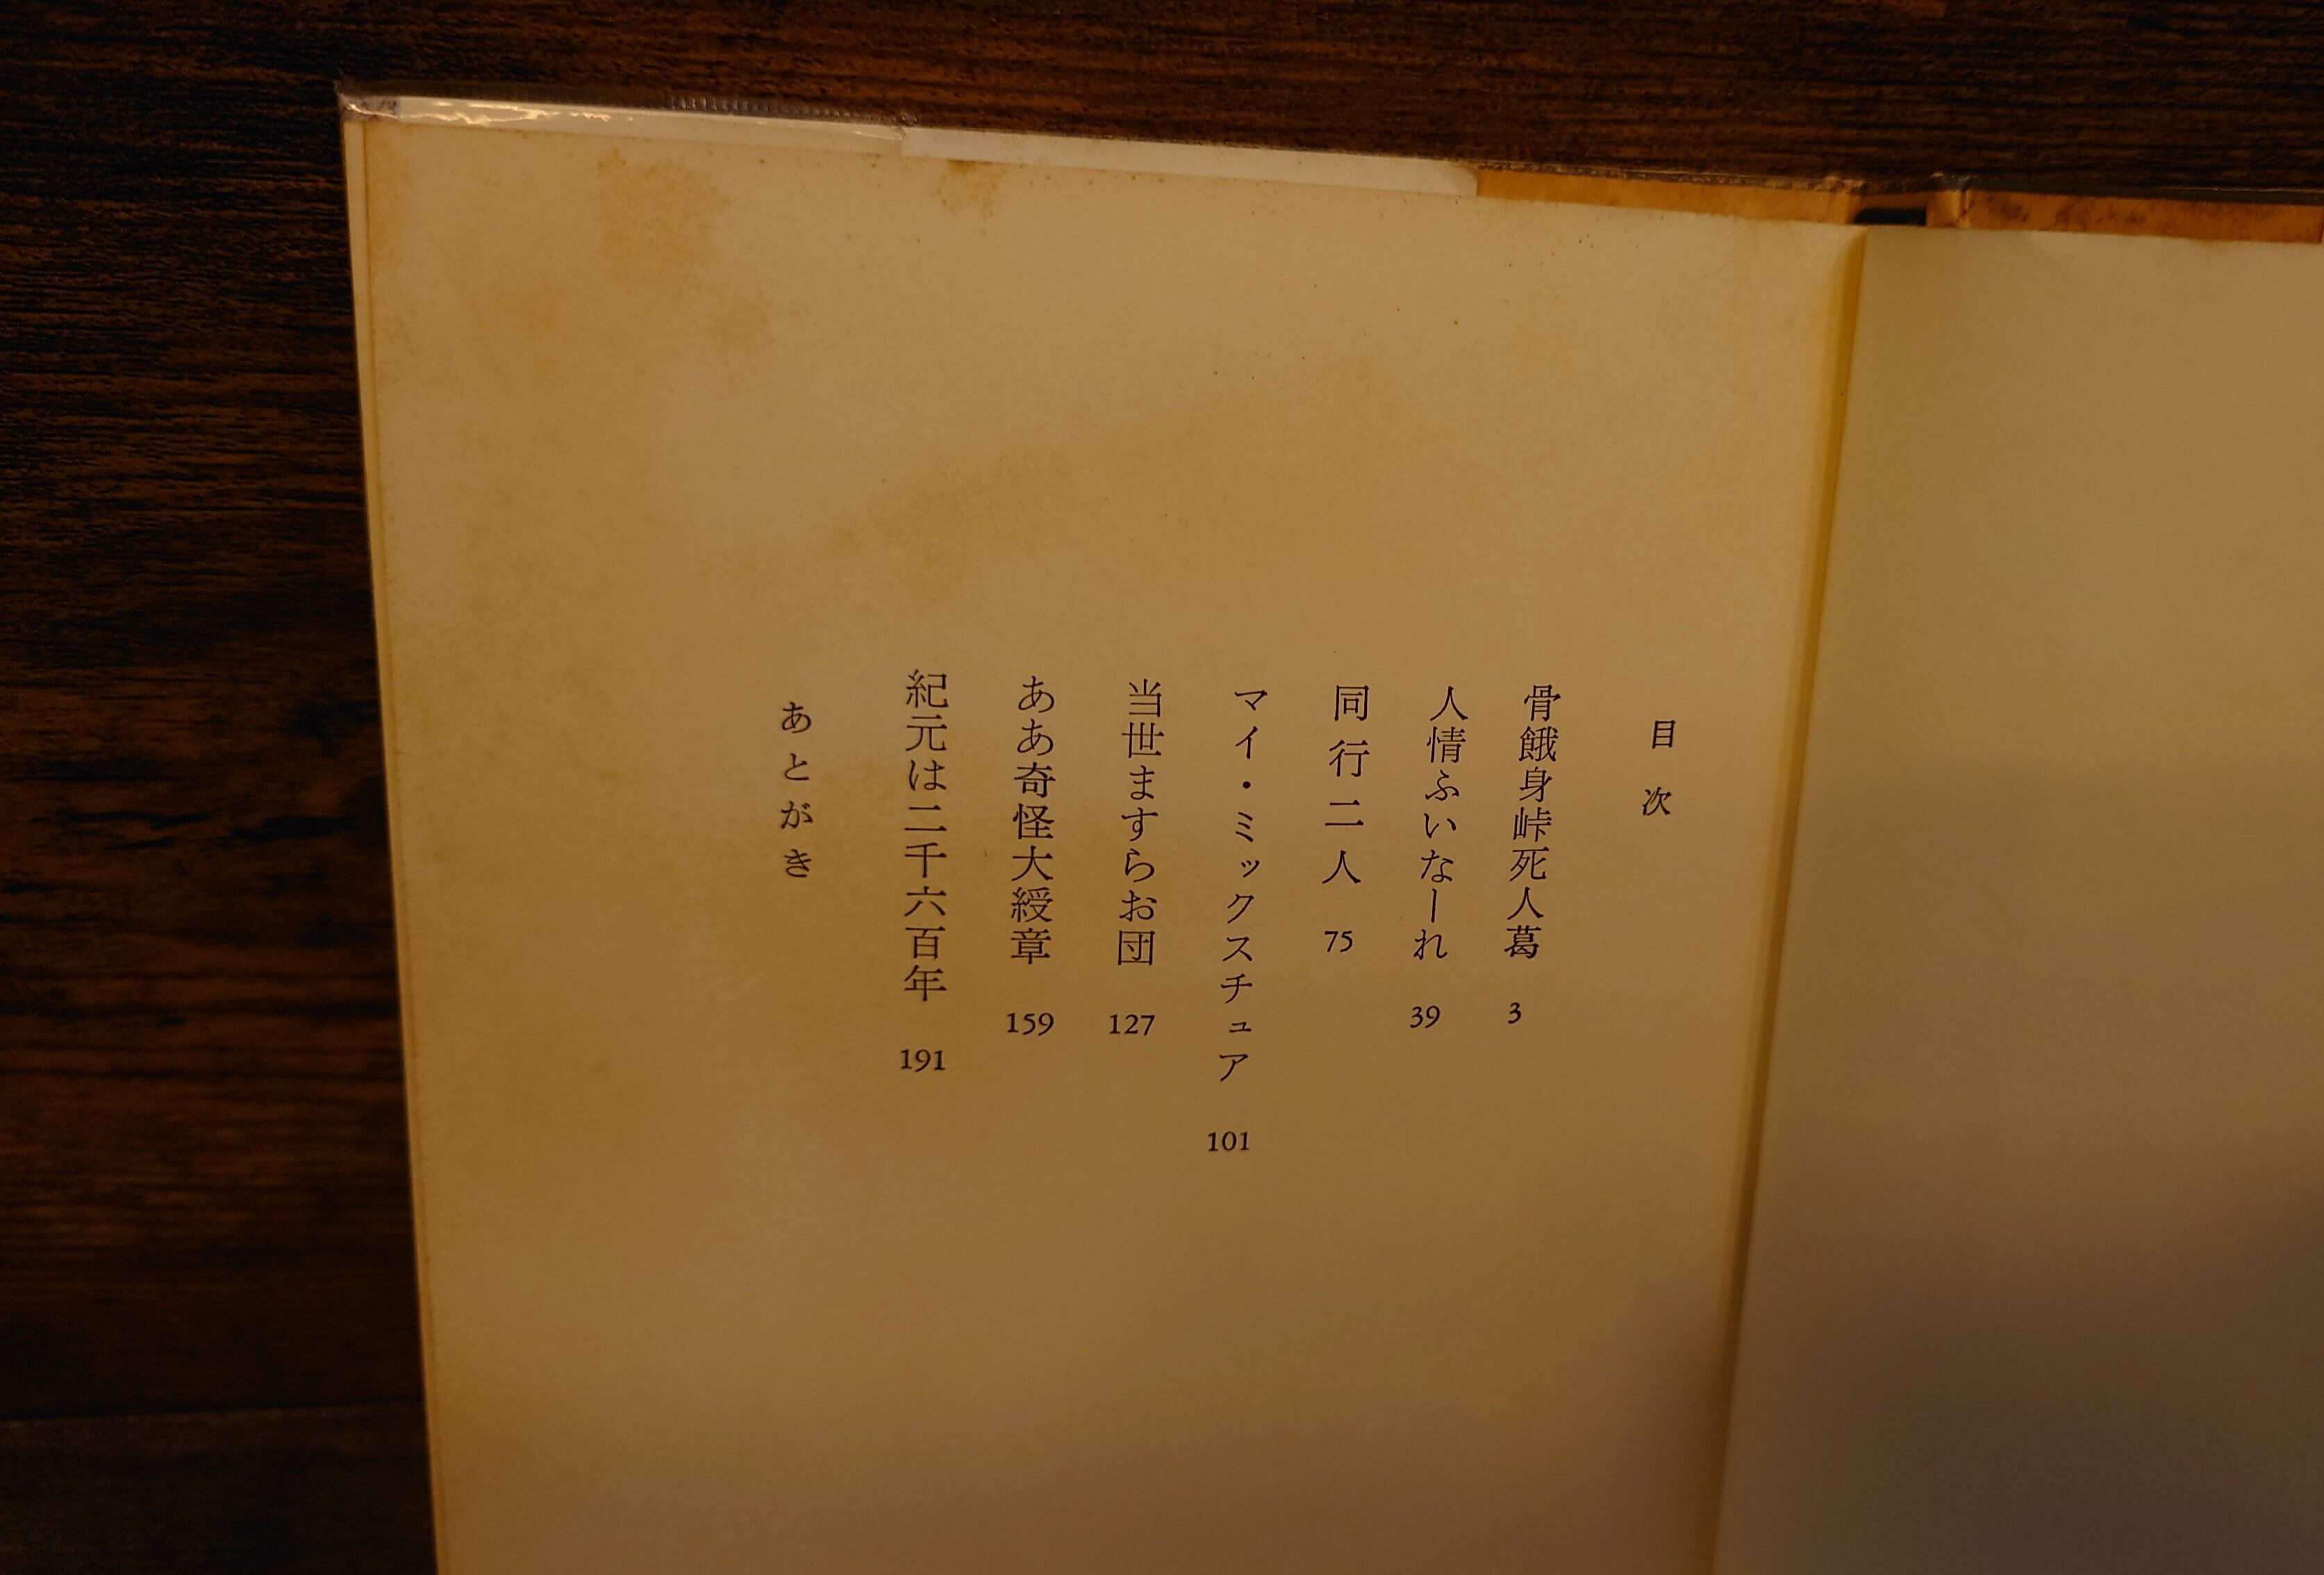 目次
骨餓身峠死人葛 3
人情ふいなーれ 39
同行二人 75
マイ・ミックスチュア 101
当世ますらお団 127
ああ奇怪大綬章 159
紀元は二千六百年 191
あとがき